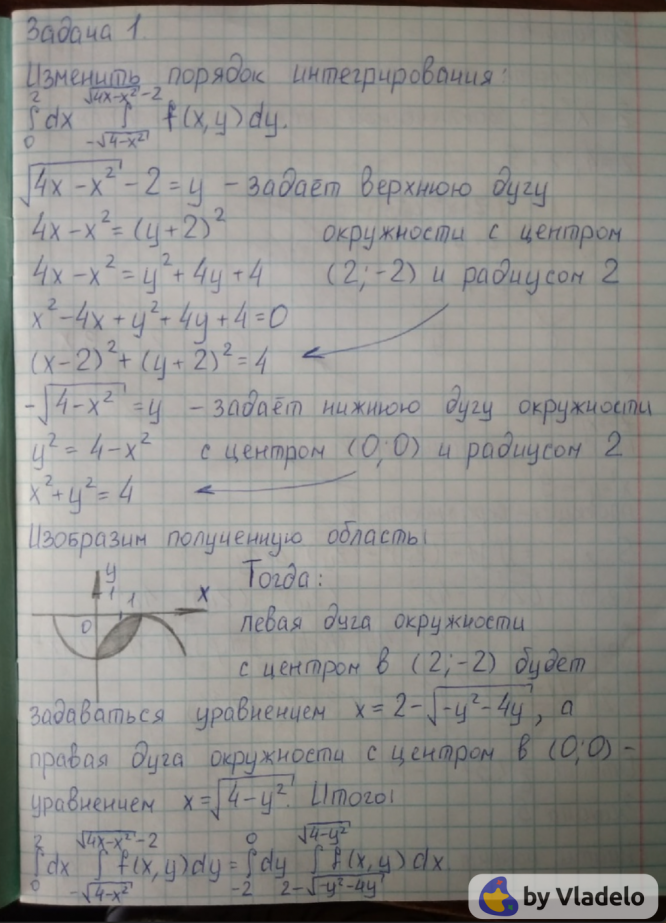 Задача 1.
Изменить порядок интегрирования:
∫₀² dx ∫_{-√(4-x²)}^{√(4x-x²)-2} f(x,y)dy.
√(4x-x²) - 2 = y - задаёт верхнюю дугу
4x-x² = (y+2)² окружности с центром
4x-x² = y²+4y+4 (2;-2) и радиусом 2
x²-4x+y²+4y+4=0
(x-2)²+(y+2)²=4
-√(4-x²) = y - задаёт нижнюю дугу окружности
y² = 4-x² с центром (0;0) и радиусом 2
x²+y²=4
Изобразим полученную область:
y
1
x
0
1
Тогда:
левая дуга окружности
с центром в (2;-2) будет
задаваться уравнением x=2-√(-y²-4y), а
правая дуга окружности с центром в (0;0) -
уравнением x=√(4-y²). Итого:
∫₀² dx ∫_{-√(4-x²)}^{√(4x-x²)-2} f(x,y)dy = ∫_{-2}^{0} dy ∫_{2-√(-y²-4y)}^{√(4-y²)} f(x,y)dx
by Vladelo